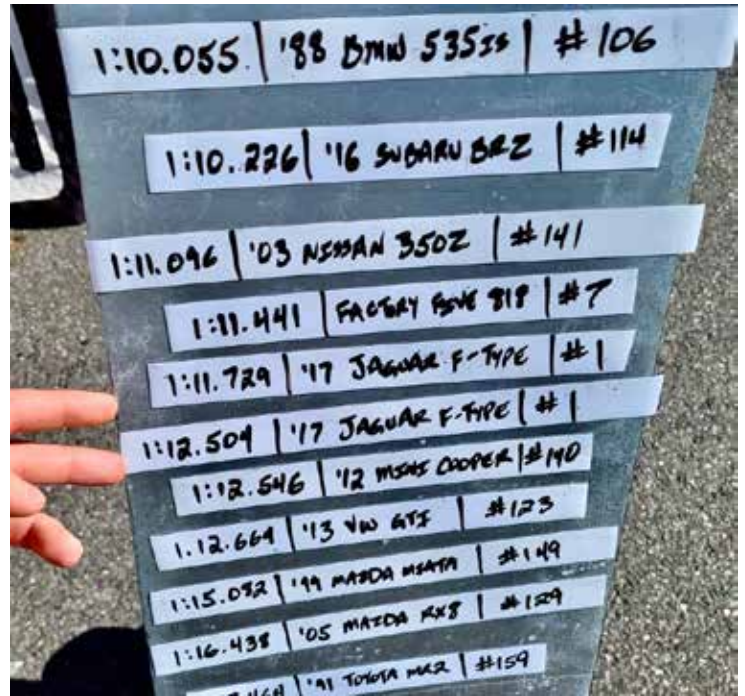 1:10.055 | '88 BMW 535is | # 106
1:10.226 | '16 SUBARU BRZ | #114
1:11.096 | '03 NISSAN 350Z | #141
1:11.441 | FACTORY FIVE 818 | #7
1:11.729 | '17 JAGUAR F-TYPE | #1
1:12.509 | '17 JAGUAR F-TYPE | # 1
1:12.546 | '12 MINI COOPER | #140
1.12.664 | '13 VW GTI | #123
1:15.082 | '99 MAZDA MIATA | #149
1:16.438 | '05 MAZDA RX8 | #129
'91 TOYOTA MR2 | #159